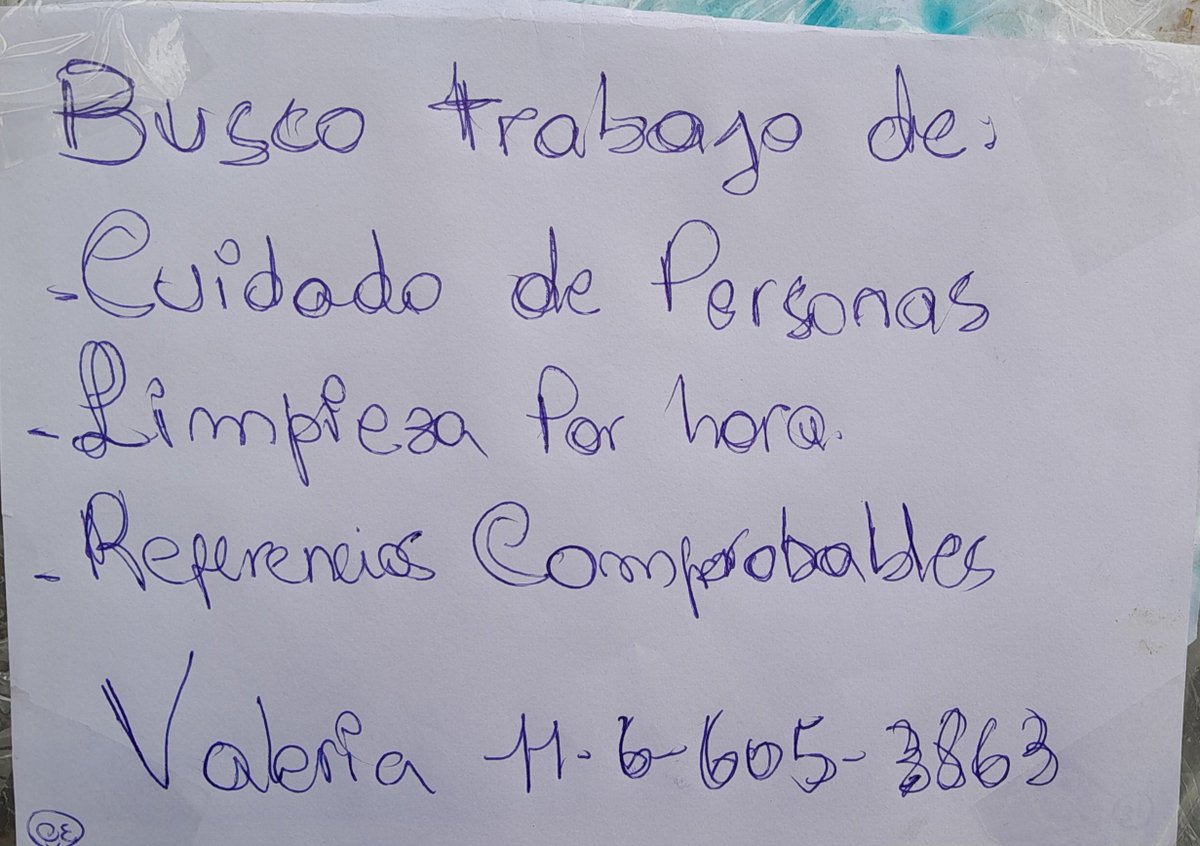 Busco trabajo de:
- Cuidado de Personas
- Limpieza Por hora.
- Referencias Comprobables
Valeria 11-6-605-3863